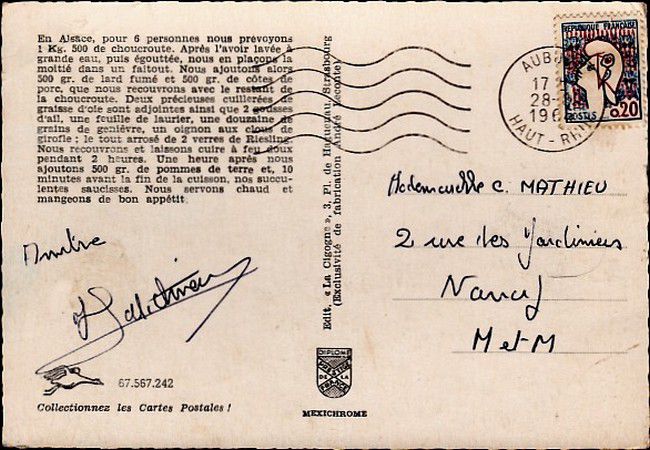 En Alsace, pour 6 personnes nous prévoyons
1 Kg. 500 de choucroute. Après l'avoir lavée à
grande eau, puis égouttée, nous en plaçons la
moitié dans un faitout. Nous ajoutons alors
500 gr. de lard fumé et 500 gr. de côtes de
porc, que nous recouvrons avec le restant de
la choucroute. Deux précieuses cuillerées de
graisse d'oie sont adjointes ainsi que 2 gousses
d'ail, une feuille de laurier, une douzaine de
grains de genièvre, un oignon aux clous de
girofle ; le tout arrosé de 2 verres de Riesling.
Nous recouvrons et laissons cuire à feu doux
pendant 2 heures. Une heure après nous
ajoutons 500 gr. de pommes de terre et, 10
minutes avant la fin de la cuisson, nos succu-
lentes saucisses. Nous servons chaud et
mangeons de bon appétit.
67.567.242
Collectionnez les Cartes Postales !
Edit. « La Cigogne », 3, Pl. de Haguenau, Strasbourg
(Exclusivité de fabrication André Leconte)
DIPLOME
PRESTIGE
DE LA
FRANCE
MEXICHROME
REPUBLIQUE FRANÇAISE
0,20
POSTES
17
28-
196
HAUT-RHIN
Mademoiselle C. MATHIEU
2 rue des Jardiniers
Nancy
M et M